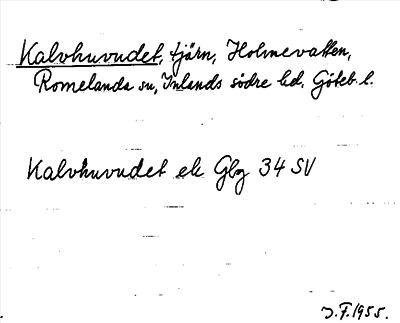 Kalvhuvudet, tjärn, Holmevatten,
Romelanda sn, Inlands södre hd. Göteb. l.
Kalvhuvudet ek Gbg 34 SV
J.F. 1955.